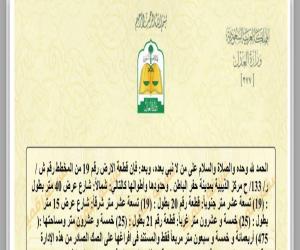 بسم الله الرحمن الرحيم
المملكة العربية السعودية
وزارة العدل
[٢٧٧]
الحمد لله وحده والصلاة والسلام على من لا نبي بعده، وبعد: فإن قطعة الارض رقم 19 من المخطط رقم ش /
ر /133/ ح مركز الذيبية بمدينة حفر الباطن . وحدودها وأطوالها كالتالي: شمالاً: شارع عرض 40 متر بطول
: (19) تسعة عشر متر جنوباً: قطعة رقم 20 بطول: (19) تسعة عشر متر شرقاً: شارع عرض 15 متر
بطول : (25) خمسة و عشرون متر غرباً: قطعة رقم 21 بطول : (25) خمسة و عشرون متر ومساحتها : (
475) أربعمائة و خمسة و سبعون متر مربعاً فقط والمستند في افراغها على الصك الصادر من هذه الادارة